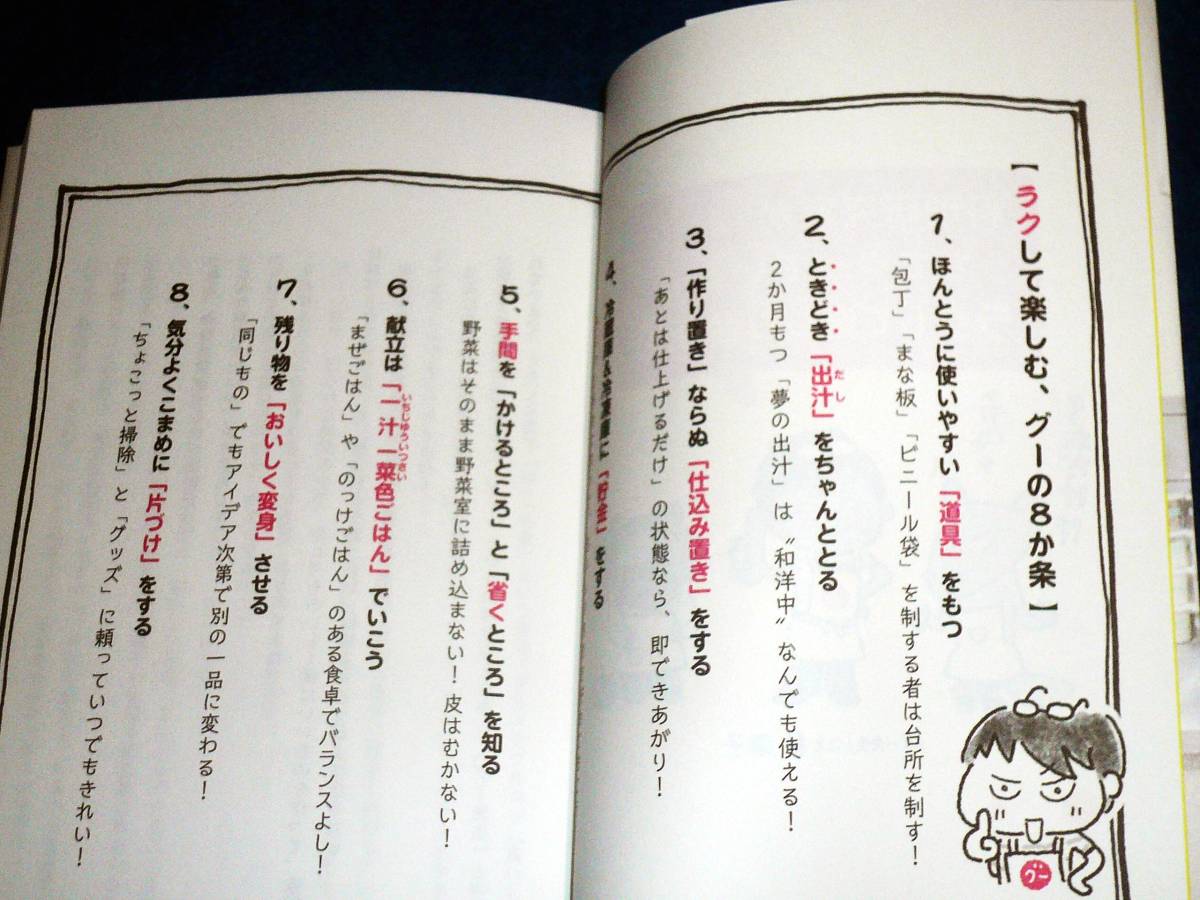 【ラクして楽しむ、グーの8か条】
1、ほんとうに使いやすい「道具」をもつ
「包丁」「まな板」「ビニール袋」を制する者は台所を制す!
2、ときどき「出汁」をちゃんととる
だし
2か月もつ「夢の出汁」は〝和洋中〟なんでも使える!
3、「作り置き」ならぬ「仕込み置き」をする
「あとは仕上げるだけ」の状態なら、即できあがり!
4、冷蔵庫&冷凍庫に「貯金」をする
5、手間を「かけるところ」と「省くところ」を知る
野菜はそのまま野菜室に詰め込まない!皮はむかない!
6、献立は「一汁一菜色ごはん」でいこう
いちじゅういっさい
「まぜごはん」や「のっけごはん」のある食卓でバランスよし!
7、残り物を「おいしく変身」させる
「同じもの」でもアイデア次第で別の一品に変わる!
8、気分よくこまめに「片づけ」をする
「ちょこっと掃除」と「グッズ」に頼っていつでもきれい!
グー